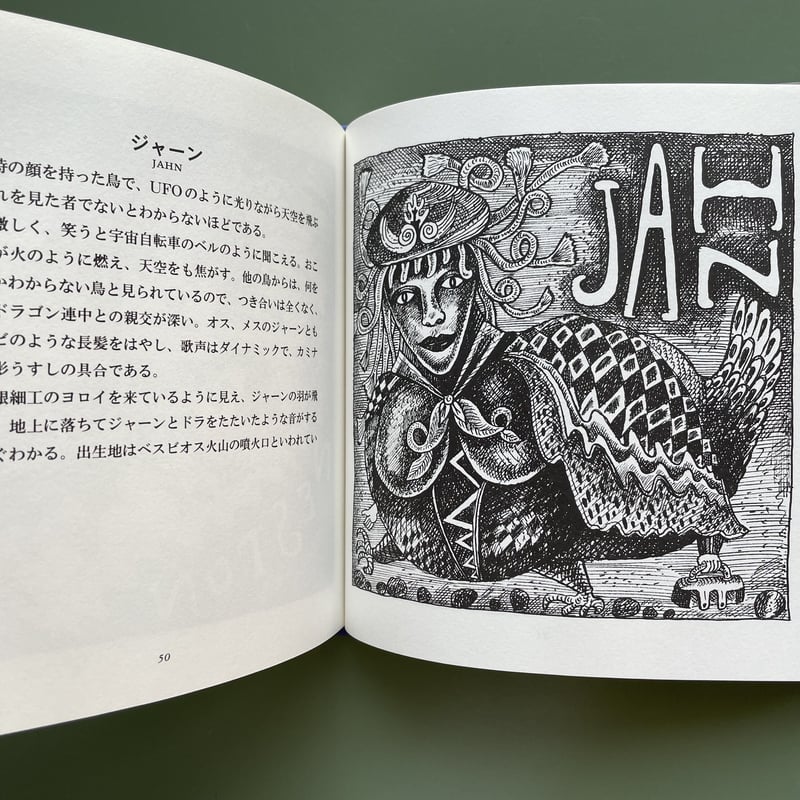 ジャーン
JAHN
時の顔を持った鳥で、UFOのように光りながら天空を飛ぶ
れを見た者でないとわからないほどである。
激しく、笑うと宇宙自転車のベルのように聞こえる。おこ
が火のように燃え、天空をも焦がす。他の鳥からは、何を
かわからない鳥と見られているので、つき合いは全くなく、
ドラゴン連中との親交が深い。オス、メスのジャーンとも
どのような長髪をはやし、歌声はダイナミックで、カミナ
彡うすしの具合である。
銀細工のヨロイを来ているように見え、ジャーンの羽が飛
地上に落ちてジャーンとドラをたたいたような音がする
ぐわかる。出生地はベスビオス火山の噴火口といわれてい
50
JAHN